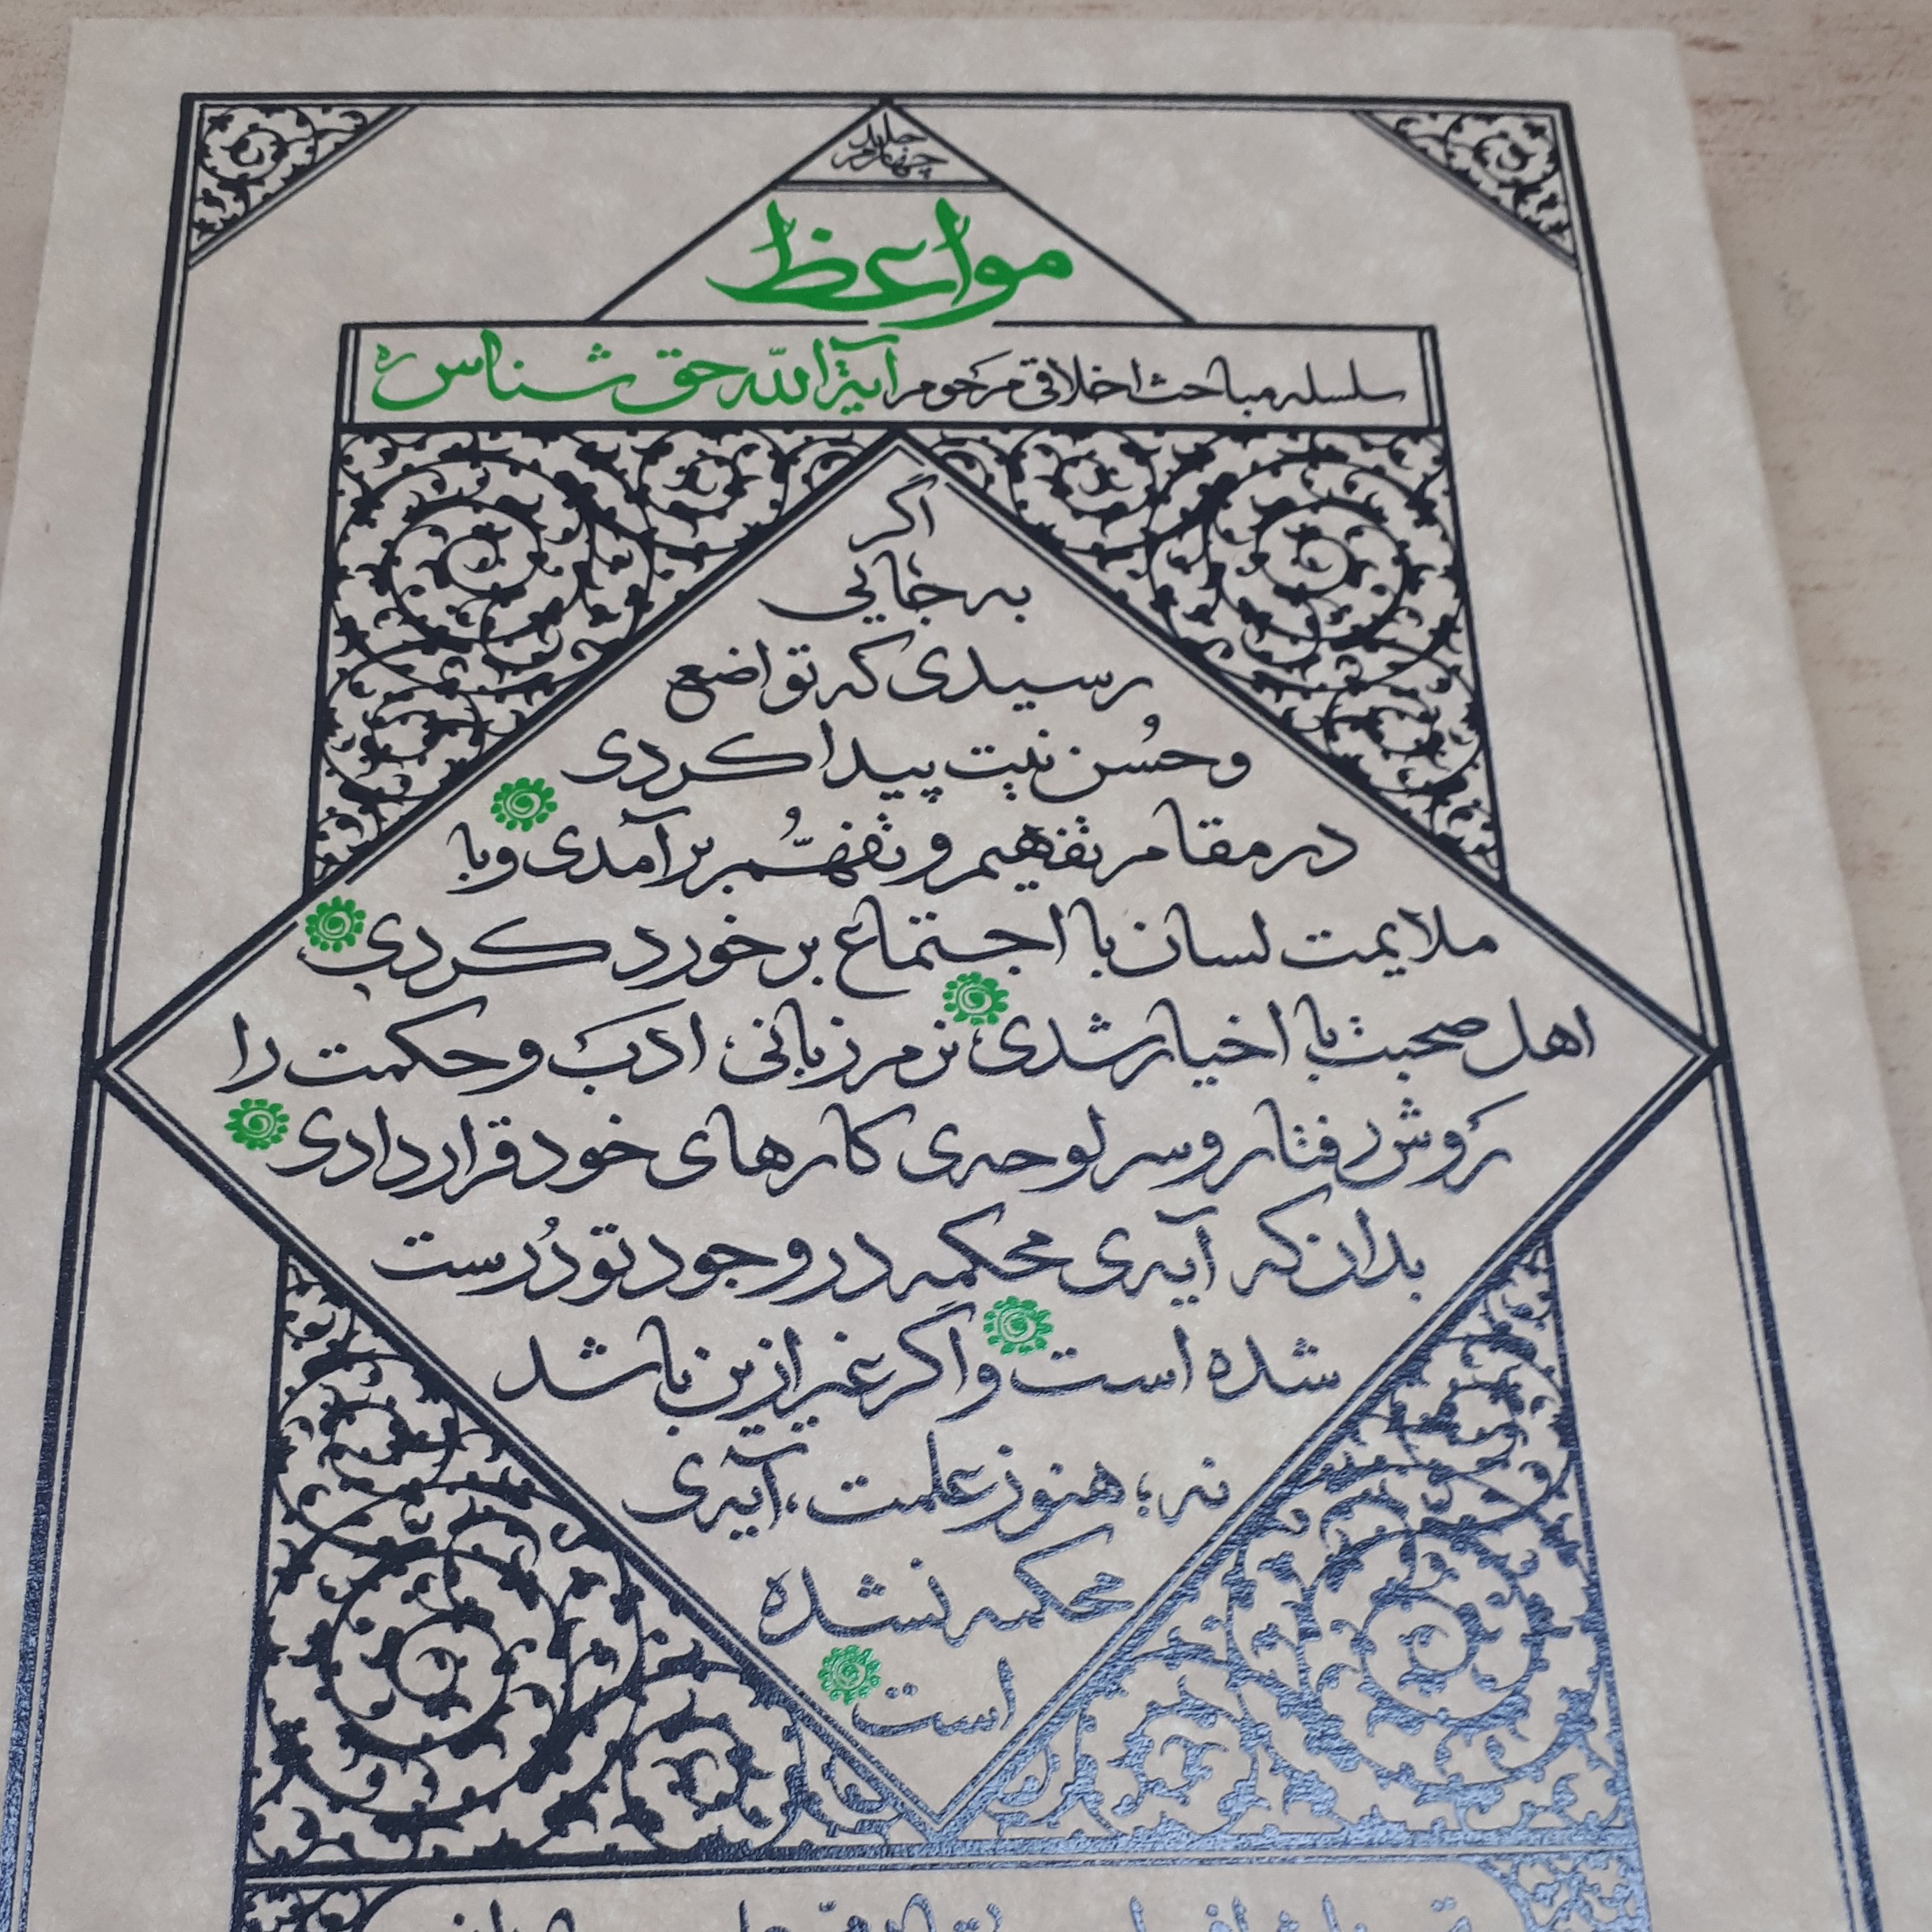 جلد چهارم
مواعظ
سلسله مباحث اخلاقی مرحوم آیة الله حق شناس ره
اگر
به جایی
رسیدی که تواضع
و حُسن نیت پیدا کردی
در مقام تفهیم و تفهُّم برآمدی و با
ملایمت لسان با اجتماع برخورد کردی
اهل صحبت با اخیار شدی نرم زبانی، ادب و حکمت را
رَوش رفتار و سر لوحه‌ی کارهای خود قرار دادی
بدان که آیه‌ی محکمه در وجود تو دُرست
شده است و اگر غیر از این باشد
نه؛ هنوز علمت، آیه‌ی
محکمه نشده
است